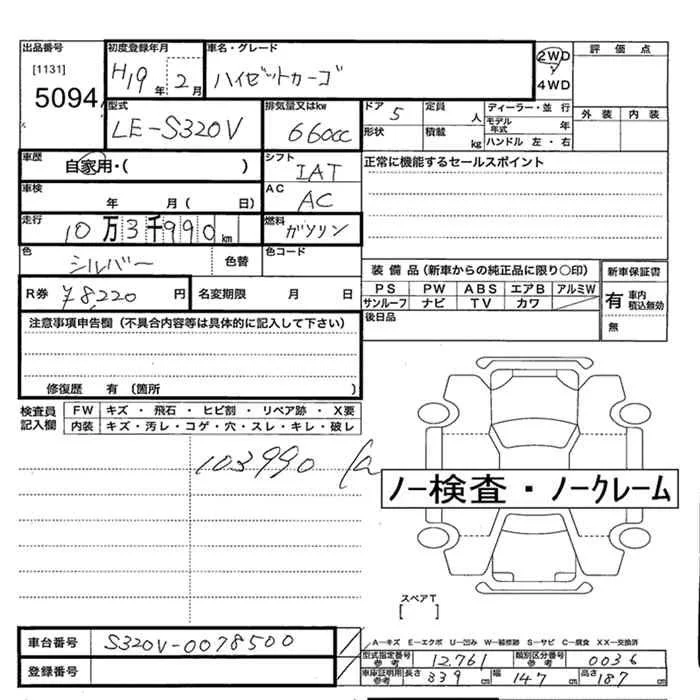 出品番号
[1131]
5094
初度登録年月
H19年2月
車名・グレード
ハイゼットカーゴ
2WD
4WD
評価点
外装 内装
型式
LE-S320V
排気量又はkw
660cc
ドア 5
定員 人
ディーラー・並 行
モデル年式 年
形状
積載 kg
ハンドル 左・右
車歴
自家用・( )
シフト
IAT
正常に機能するセールスポイント
車検
年 月( 日)
AC
AC
走行
10万3千990km
燃料
ガソリン
色
シルバー
色替
色コード
R券 ¥8,220円
名変期限 月 日
装備品(新車からの純正品に限り○印)
PS PW ABS エアB アルミW
サンルーフ ナビ TV カワ
新車保証書
有 車内積込無効
無
後日品
注意事項申告欄(不具合内容等は具体的に記入して下さい)
修復歴 有(箇所 )
検査員記入欄
FW キズ・飛石・ヒビ割・リペア跡・X要
内装 キズ・汚レ・コゲ・穴・スレ・キレ・破レ
103990
ノー検査・ノークレーム
スペアT
[ ]
A−キズ E−エクボ U−凹み W−補修跡 S−サビ C−腐食 XX−交換済
車台番号 S320V-0078500
登録番号
型式指定番号 参考 12761
類別区分番号 参考 0036
車庫証明用 参考 長さ 339cm 幅 147cm 高さ 187cm